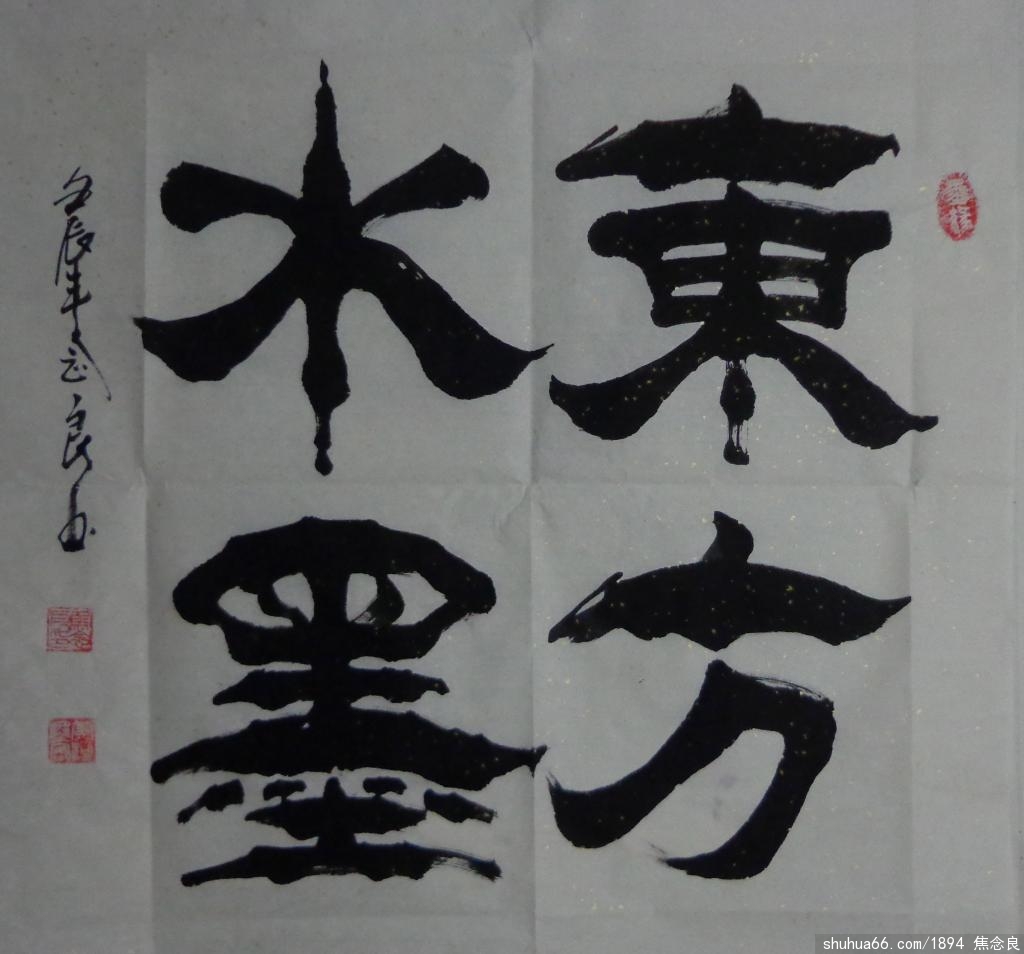 東方
水墨
壬辰年念良书
shuhua66.com/1894 焦念良